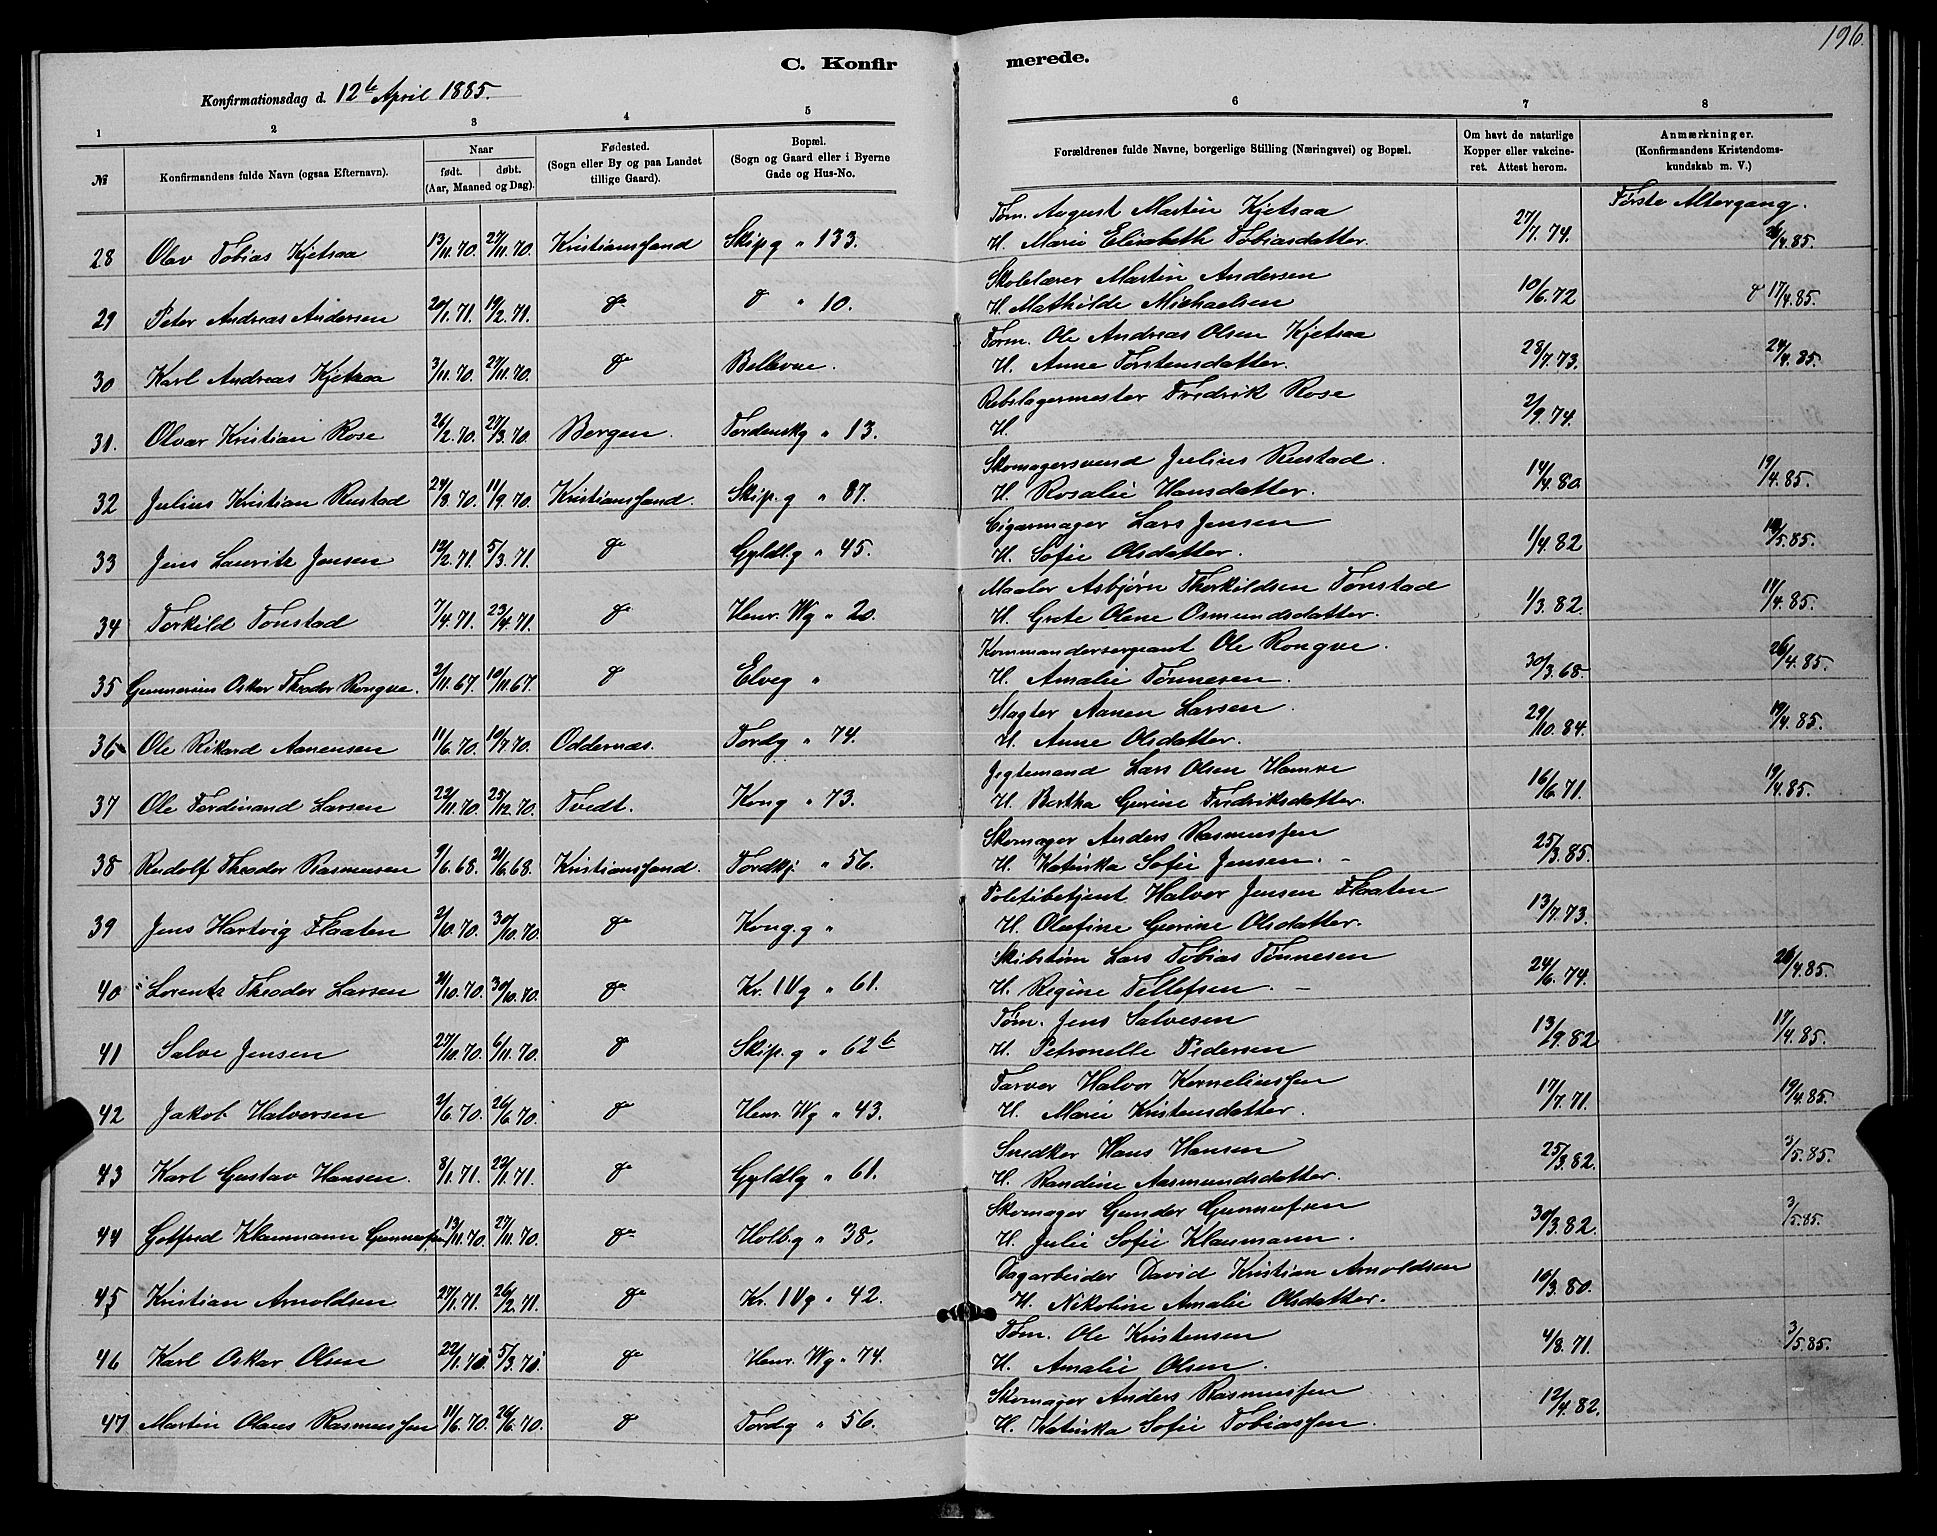 196.
C. Konfirmerede.
Konfirmationsdag d. 12te April 1885.
1 2 3 4 5 6 7 8
№ Konfirmandens fulde Navn (ogsaa Efternavn). Naar født. døbt. (Aar, Maaned og Dag). Fødested. (Sogn eller By og paa Landet tillige Gaard). Bopæl. (Sogn og Gaard eller i Byerne Gade og Hus-No. Forældrenes fulde Navne, borgerlige Stilling (Næringsvei) og Bopæl. Om havt de naturlige Kopper eller vakcineret. Attest herom. Anmærkninger. (Konfirmandens Kristendomskundskab m. V.)
Første Altergang.
Tøm. August Martin Kjetsaa
28 Olav Tobias Kjetsaa 13/11.70. 27/11.70. Kristianssand Skipg " 133. H. Marie Elisabeth Tobiasdatter. 27/7.74. 26/4.85.
Skolelærer Martin Andersen
29 Peter Andreas Andersen 20/1.71. 19/2.71. do do " 10. H. Mathilde Michaelsen 10/6.72 do 17/4.85.
Tøm. Ole Andreas Olsen Kjetsaa
30 Karl Andreas Kjetsaa 3/11.70. 27/11.70. do Bellevue. H. Anne Torstensdatter. 28/7.73. 24/4.85.
Rebslagermester Fredrik Rose
31. Olvar Kristian Rose 26/2.70. 27/3.70. Bergen. Tordenskg " 13. H. 2/9.74.
Skomagersvend Julius Rustad.
32 Julius Kristian Rustad 24/8.70. 11/9.70. Kristianssand. Skip.g " 87. H. Rosalie Hansdatter. 14/4.80. 19/4.85.
Cigarmager Lars Jensen
33 Jens Lauritz Jensen 12/2.71. 5/3.71. do Gyldl.g " 45. H. Sofie Olsdatter. 1/4.82 /5.85.
Maaler Asbjørn Thorkildsen Tonstad
34 Torkild Tonstad 7/4.71. 23/4.71. do Henr. Wg " 20. H. Grete Olene Osmundsdatter. 1/3.82. 17/4.85.
Kommandersergeant Ole Rongve.
35 Gunnerius Oskar Theodor Rongve. 2/11.67. 10/11.67. do Elveg " H. Amalie Tønnesen. 30/3.68. 26/4.85.
Slagter Aanen Larsen.
36 Ole Rikard Aanensen 11/6.70. 10/7.70. Oddernæs. Tordg " 74. H. Anne Olsdatter. 29/10.84. 19/4.85.
Jegtemand Lars Olsen Hamre
37 Ole Ferdinand Larsen 22/11.70. 25/12.70. Tvedt. Kong " 73. H. Bertha Gurine Fredriksdatter. 16/6.71. 19/4.85.
Skomager Anders Rasmussen
38 Rudolf Theodor Rasmussen 9/6.68. 21/6.68. Kristianssand. Tordkj. " 56. H. Katinka Sofie Jensen. – 25/3.85.
Politibetjent Halvor Jensen Flaaten
39 Jens Hartvig Flaaten 2/10.70. 30/10.70. do Kong.g " H. Olufine Gurine Olsdatter. 13/7.73.
Skibstøm Lars Tobias Tønnesen
40 Lorentz Theodor Larsen 21/10.70. 30/10.70. do Kr. IVg " 61. H. Regine Tellefsen. – 24/6.74. 26/4.85.
Tøm. Jens Salvesen
41 Salve Jensen 27/10.70. 6/11.70. do Skip.g " 62b H. Petronelle Pedersen 13/9.82 17/4.85.
Farver Halvor Korneliussen
42 Jakob Halvorsen 2/6.70. 26/6.70. do Henr. Wg " 43. H. Marie Kristensdatter. 17/7.71. 19/4.85.
Snedker Hans Hansen
43 Karl Gustav Hansen. 8/1.71. 22/1.71. do Gyldlg " 61. H. Randine Aasmundsdatter. 25/3.82. 3/5.85.
Skomager Gunder Gunnufsen
44 Gotfred Klaumann Gunnufsen 13/11.70. 27/11.70. do Holb.g " 38. H. Julie Sofie Klaumann. 30/3.82. 3/5.85.
Dagarbeider David Kristian Arnoldsen
45 Kristian Arnoldsen 27/1.71. 26/2.71. do Kr. IVg " 42. H. Nikoline Amalie Olsdatter. 16/3.80.
Tøm. Ole Kristensen
46 Karl Oskar Olsen 22/1.70. 5/3.70. do Henr. Wg " 74. H. Amalie Olsen. 4/8.71. 3/5.85.
Skomager Anders Rasmussen
47 Martin Olaus Rasmussen 11/6.70. 26/6.70. do Tordg " 56. H. Katinka Sofie Tobiassen. 12/4.82.